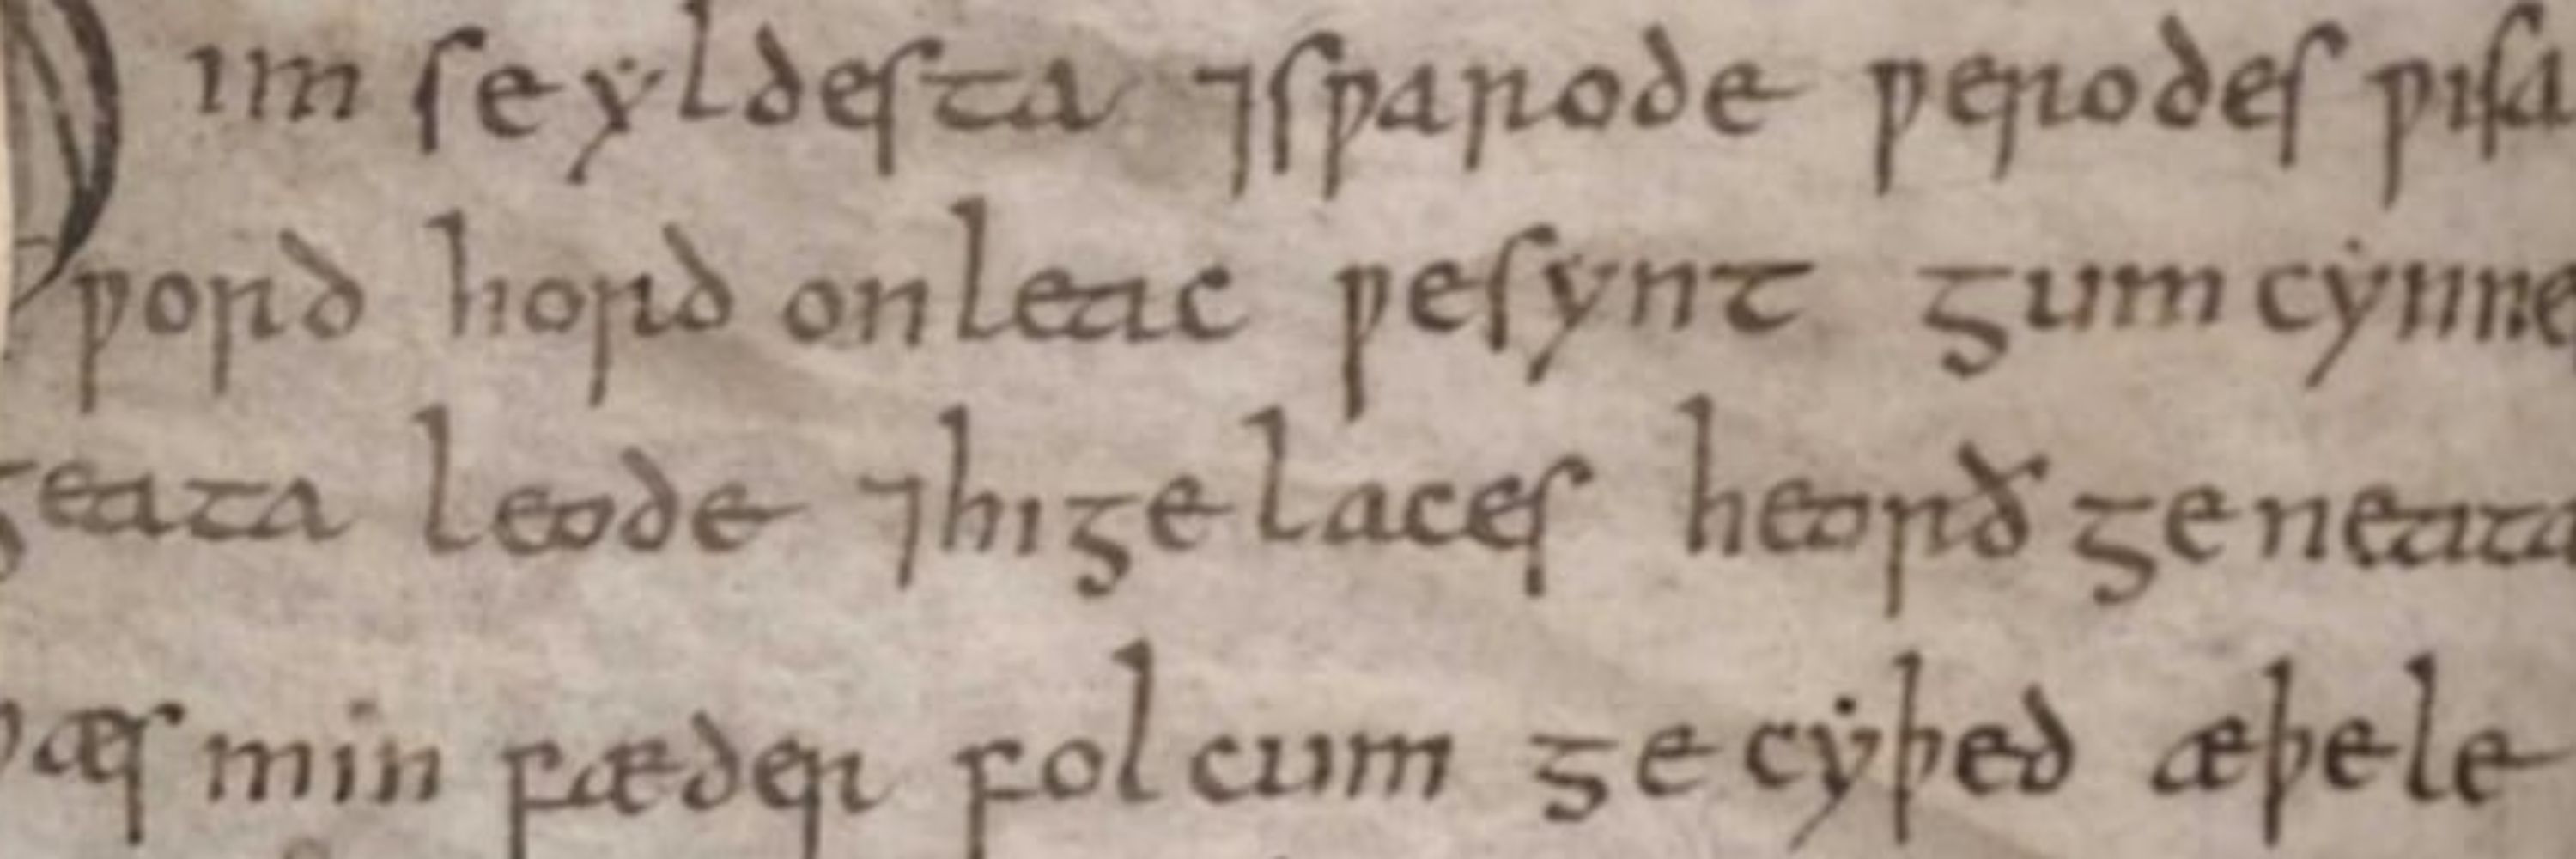 Him se yldesta ⁊ ſƿarode ƿerodes ƿisa
ƿord hord onleac ƿe synt gum cynnes
geata leode ⁊ higelaces heorð geneatas
ƿæs min fæder folcum gecyþed æþele